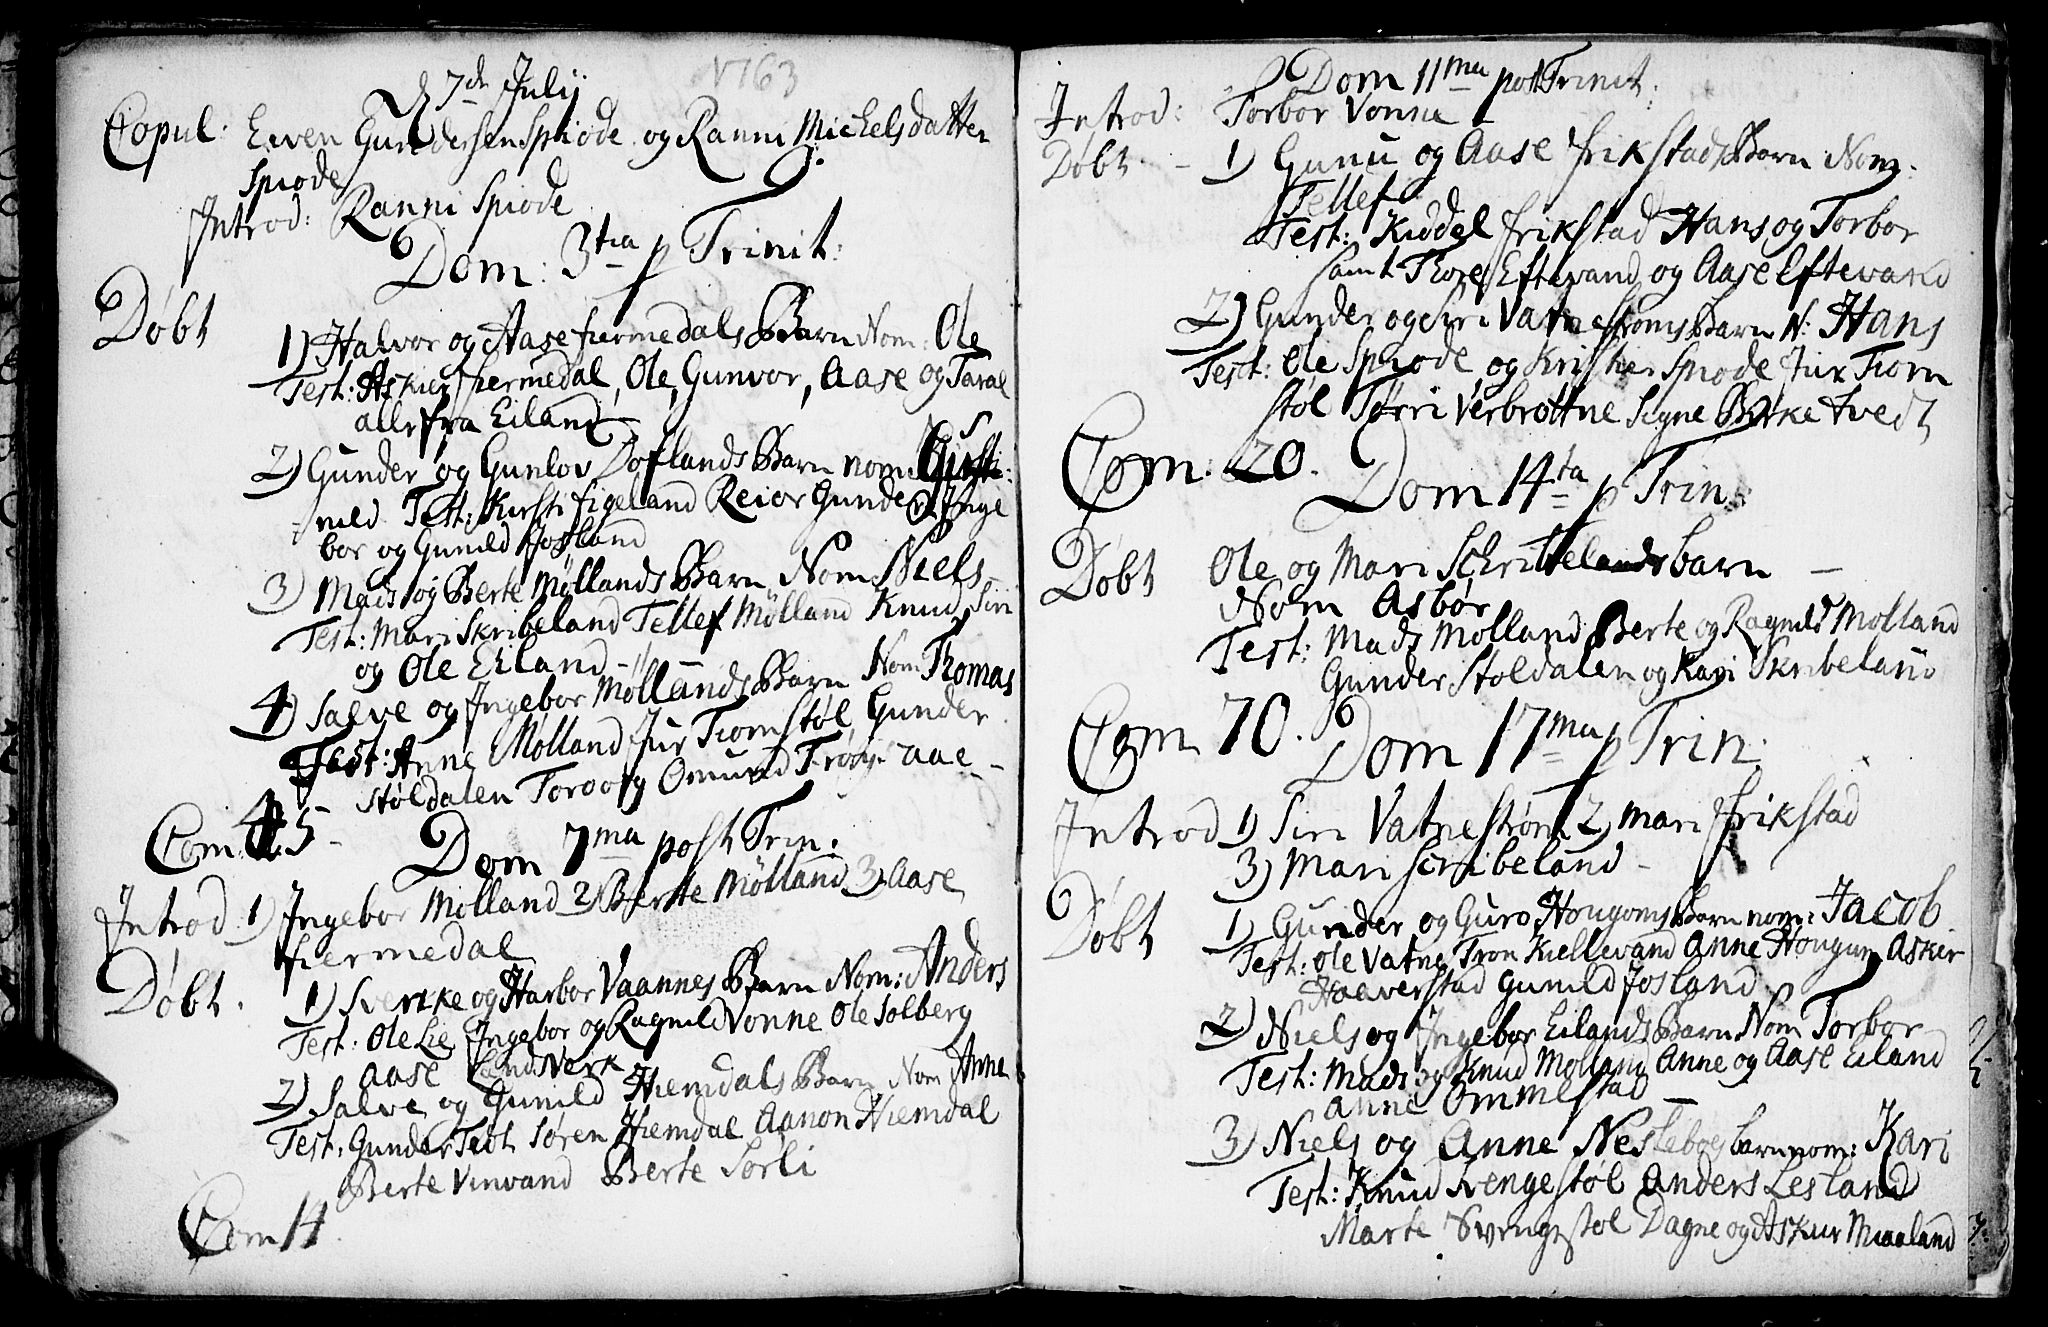 1763
d 7de Julij
Copul: Even Gundersen Spiode og Ranni Michelsdatter
Spiode
Introd: Ranni Spiode
Dom: 3tia p Trinit:
Døbt
1) Halvor og Aase fiermedals Barn Nom: Ole
Test: Askier fiermedal, Ole, Gunvor, Aase og Taral
alle fra Eiland
2) Gunder og Gunlov Doflands Barn nom:
nild Test: Kirsti figeland Reior Gunder Inge
bor og Gunild Josland
3) Mads og Berte Møllands Barn Nom Niels
Test: Mari Skribeland Tellef Mølland Knud, Siri
og Ole Eiland
4) Salve og Ingebor Møllands Barn Nom Thomas
Test: Anne Mølland Jur Tiomstøl Gunder
Støldalen Torborg Omund Trøys aae
Com: 45
Dom 7ma post Trin:
Introd. 1) Ingebor Mølland 2) Berte Mølland 3) Aase
fiermedal
Døbt.
1) Svenke og Harbor Vaannes Barn Nom: Anders
Test: Ole Lie Ingebor og Ragnild Vonne Ole Solberg
Aase Landsverk
2) Salve og Gunild Hiemdals Barn Nom Anne
Test: Gunder Tveit Søren Hiemdal Aanon Hiemdal
Berte Vinvand Berte Sorli
Com 14.
Dom 11ma post Trinit:
Introd: Torbor Vonne
Døbt. 1) Gunu og Aase frikstads Barn Nom:
Tellef
Test: Kiddel frikstad Hans og Torbor
samt Thore Eftevand og Aase Eftevand
2) Gunder og Siri Vatnestroms Barn N: Hans
Test: Ole Spiode og Kristen Spiode Jur Tiom
støl Tørri Verbrottne Signe Birketvedt
Com: 20.
Dom 14ta p Trin:
Døbt Ole og Mari Schribelands barn
Nom Asbør
Test: Mads Mølland Berte og Ragnild Mølland
Gunder Støldalen og Kari Skribeland
Com 70.
Dom 17ma p Trin:
Introd 1) Siri Vatnestrøm 2) Mari frikstad
3) Mari Scribeland
Døbt 1) Gunder og Guro Hougoms Barn nom: Jacob
Test: Ole Vatne Tron Kiellevand Anne Hougum Askier
Haaverstad Gunild Josland
2) Niels og Ingebor Eilands Barn Nom Torbor
Test: Mads og Knud Mølland Anne og Aase Eiland
Anne Ommestad
3) Niels og Anne Neslebogs barn nom: Kari
Test: Knud Svengestøl Anders Lesland
Marte Svengestøl Dagne og Askier Miaaland